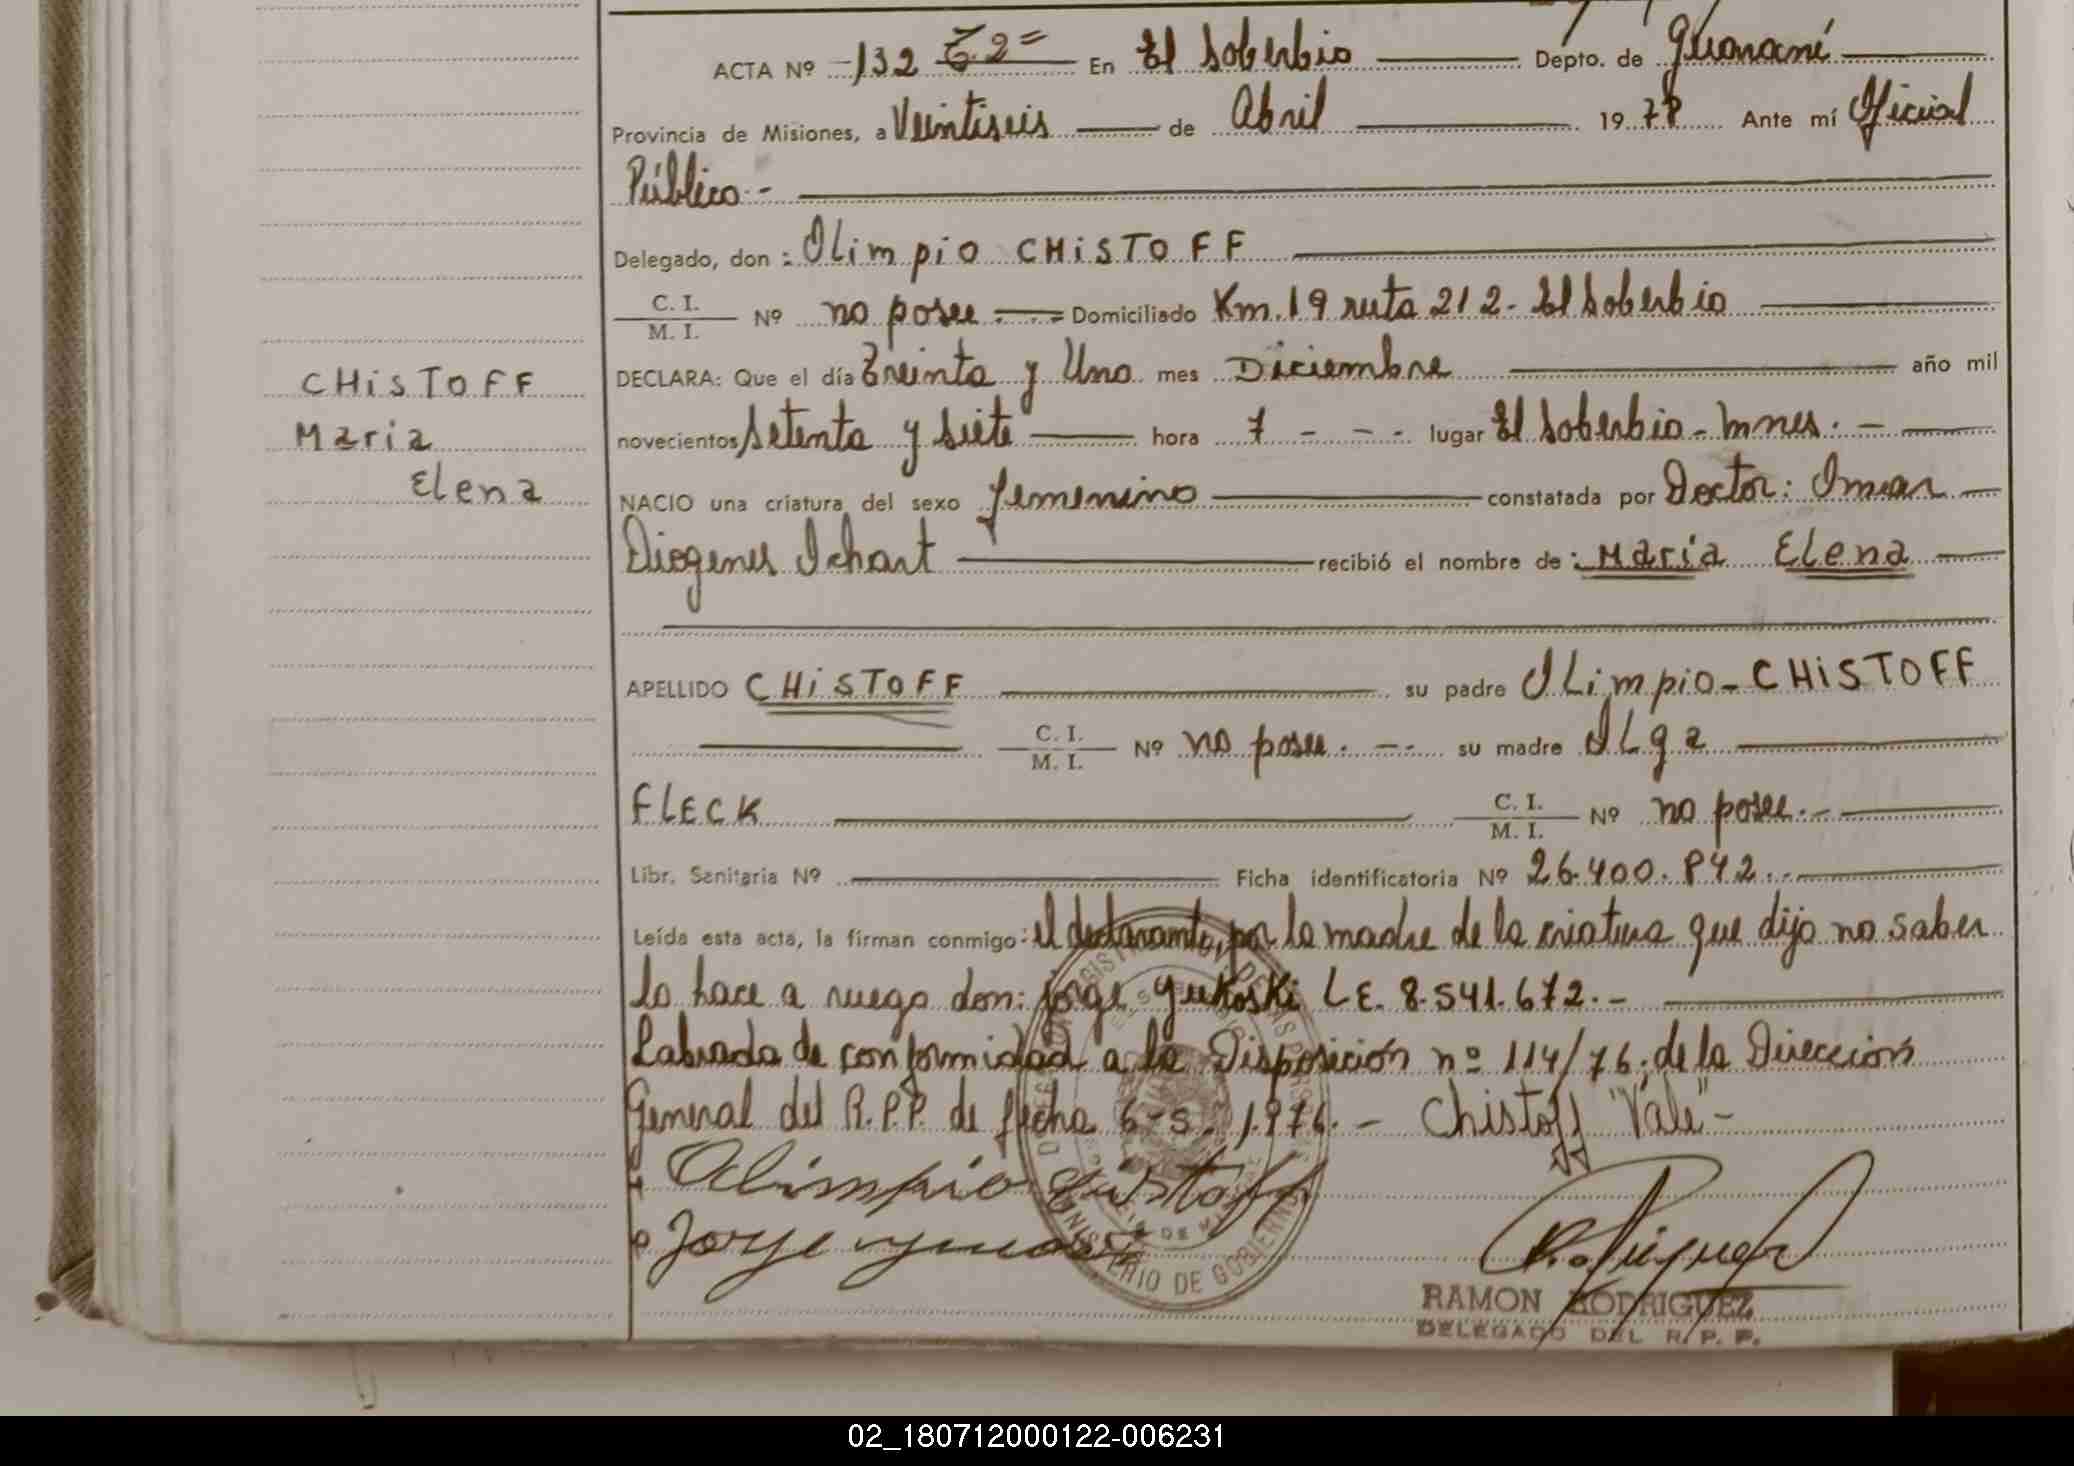 ACTA Nº 132 T. 2º En El Soberbio Depto. de Guaraní
Provincia de Misiones, a Veintiseis de Abril 1978 Ante mí Oficial
Público.-
Delegado, don: Olimpio CHiSTOFF
C. I.
M. I. Nº no posee Domiciliado Km. 19 ruta 212 - El Soberbio
CHiSTOFF
DECLARA: Que el día Treinta y Uno mes Diciembre año mil
Maria
novecientos Setenta y Siete hora 7 - - - lugar El Soberbio - Mnes. -
Elena
NACIO una criatura del sexo femenino constatada por Doctor: Omar
Diogenes Ichart recibió el nombre de: María Elena
APELLIDO CHiSTOFF su padre OLimpio - CHiSTOFF
C. I.
M. I. Nº no posee. - - su madre OLga
FLECK C. I.
M. I. Nº no posee. -
Libr. Sanitaria Nº Ficha identificatoria Nº 26.400.842. -
Leída esta acta, la firman conmigo: el declarante, por la madre de la criatura que dijo no saber
lo hace a ruego don: Jorge Yukoski L.E. 8.541.672. -
Labrada de conformidad a la Disposición nº 114/76, de la Dirección
General del R.P.P. de fecha 6-5-1.976. - Chistoff "Vale" -
Olimpio Cristoff
Jorge
RAMON RODRIGUEZ
DELEGADO DEL R. P. P.
MINISTERIO DE GOBIERNO
02_180712000122-006231